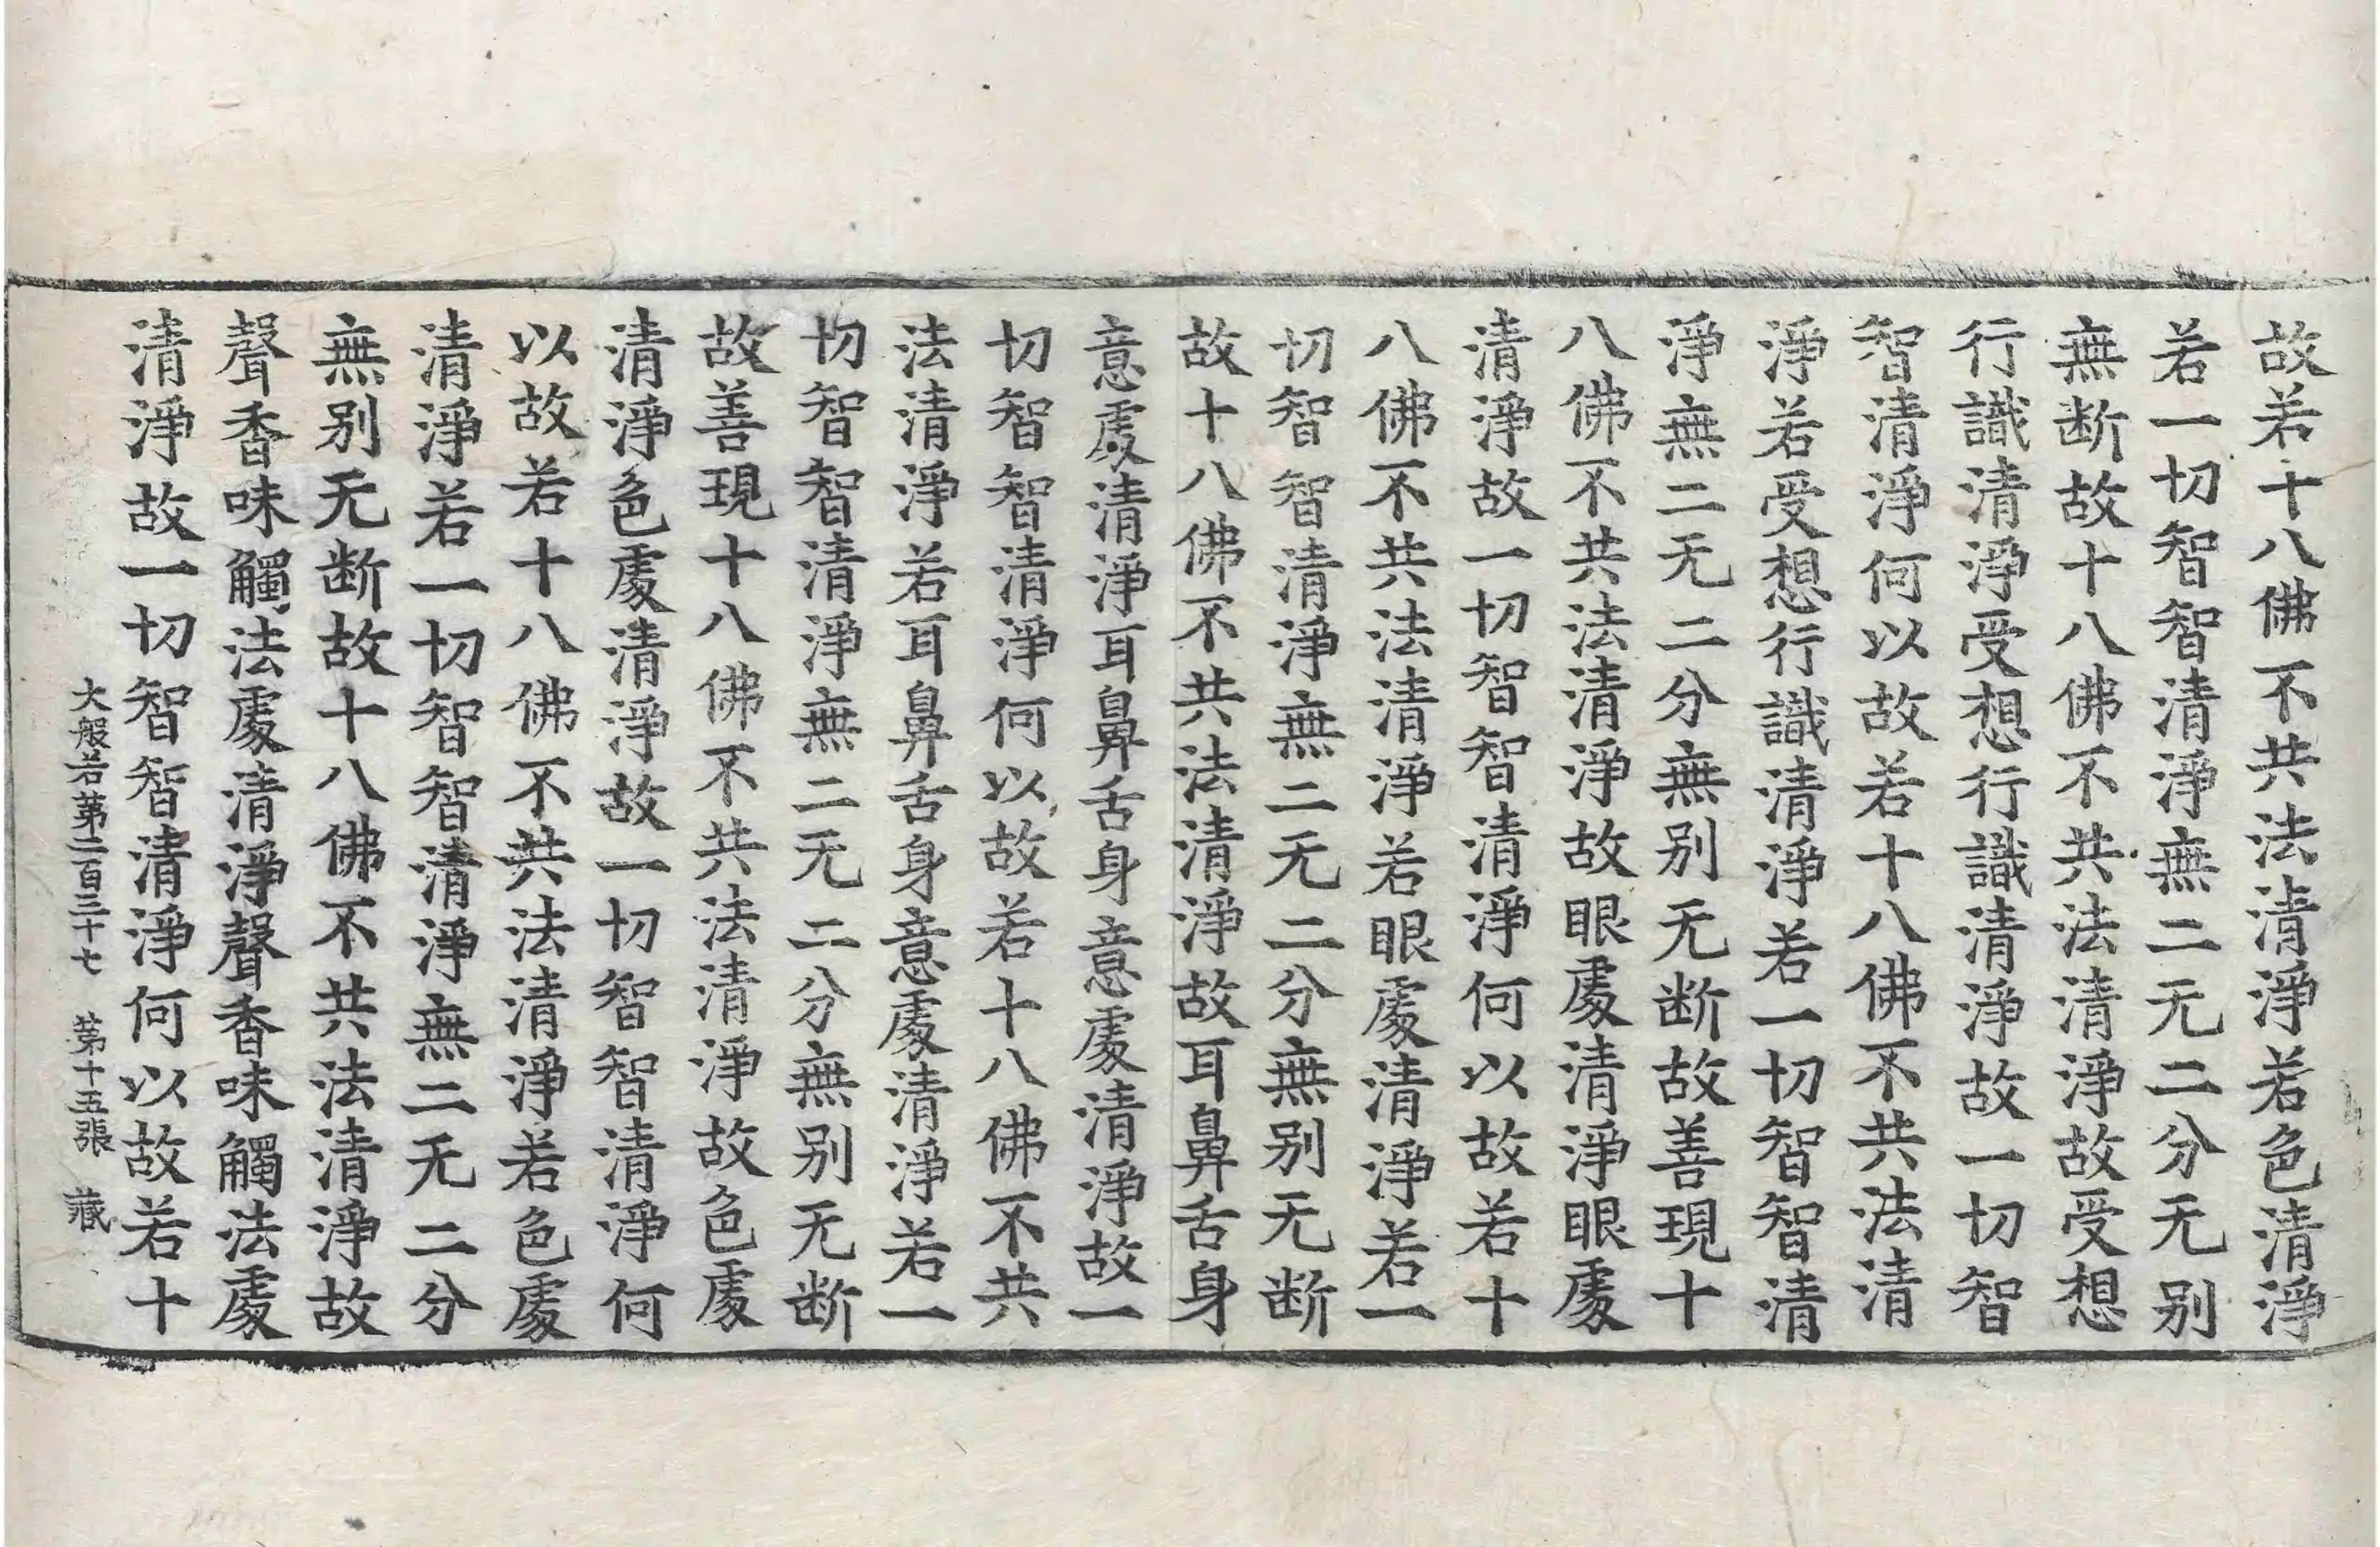 故若十八佛不共法清淨若色清淨
若一切智智清淨無二无二分无别
無断故十八佛不共法清淨故受想
行識清淨受想行識清淨故一切智
智清淨何以故若十八佛不共法清
淨若受想行識清淨若一切智智清
淨無二无二分無别无断故善現十
八佛不共法清淨故眼處清淨眼處
清淨故一切智智清淨何以故若十
八佛不共法清淨若眼處清淨若一
切智智清淨無二无二分無别无断
故十八佛不共法清淨故耳鼻舌身
意處清淨耳鼻舌身意處清淨故一
切智智清淨何以故若十八佛不共
法清淨若耳鼻舌身意處清淨若一
切智智清淨無二无二分無别无断
故善現十八佛不共法清淨故色處
清淨色處清淨故一切智智清淨何
以故若十八佛不共法清淨若色處
清淨若一切智智清淨無二无二分
無别无断故十八佛不共法清淨故
聲香味觸法處清淨聲香味觸法處
清淨故一切智智清淨何以故若十
大般若第二百三十七 第十五張 藏